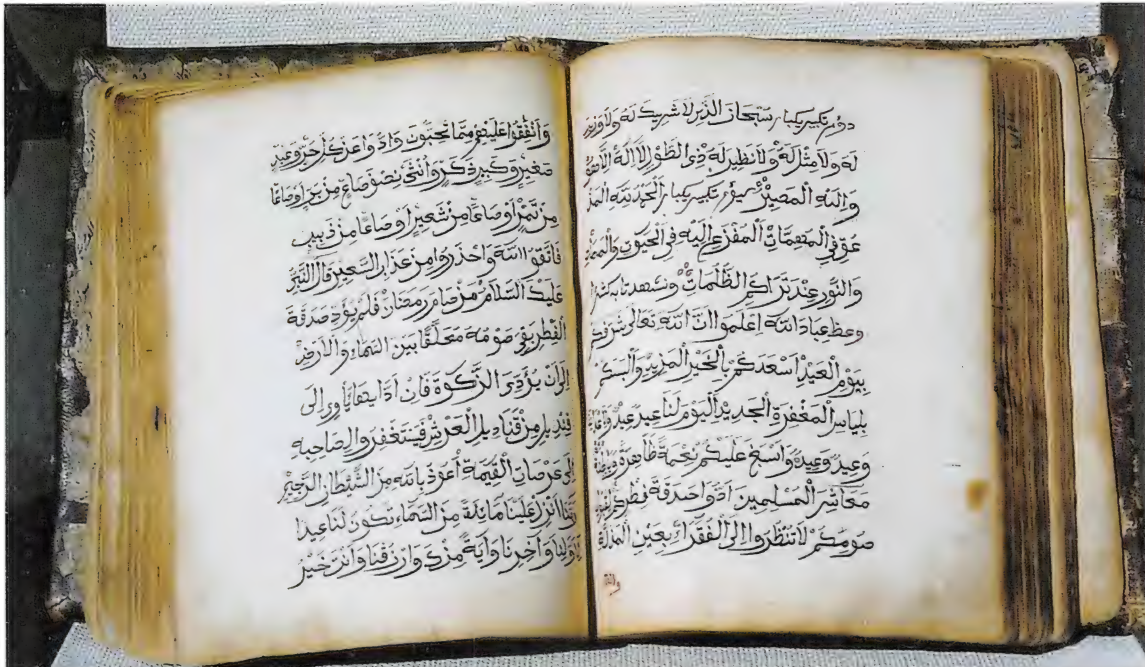 دوم تكبير كبار سبحان الذي لا شريك له ولا وزير
له ولا مثل له ولا نظير له ذي الطول لا اله الا هو
واليه المصير سيوم تكبير كبار الحمد لله المذ
عو في المهمات المفزع اليه في الحيوت والممات
والنور عند تراكم الظلمات ونشهد تا به
وعظ عباد الله اعلموا ان الله تعالى شرفكم
بيوم العيد اسعدكم بالخير المزيد والبسكم
بلباس المغفرة الجديد اليوم لنا عيد عيد
وعيد وعيد واسبغ عليكم نعمة ظاهرة وباطنة
معاشر المسلمين ادوا صدقة فطركم
صومكم لا تنظروا الى الفقراء بعين المذلة
وانفقوا عليهم مما تحبون وادوا عن كل حر وعبد
صغير وكبير ذكر وانثى نصف صاع من بر او صاعا
من تمر او صاعا من شعير او صاعا من زبيب
فاتقوا الله واحذروا من عذاب السعير قال النبي
عليه السلام من صام رمضان فلم يؤد صدقة
الفطر بقي صومه معلقا بين السماء والارض
الى ان يؤدى الزكوة فان ادا الى
قنديل من قناديل العرش فيستغفر والصاحبه
الى عرصات القيمة اعوذ بالله من الشيطان الرجيم
ربنا انزل علينا مائدة من السماء تكون لنا عيدا
لاولنا وآخرنا وآية منك وارزقنا وانت خير